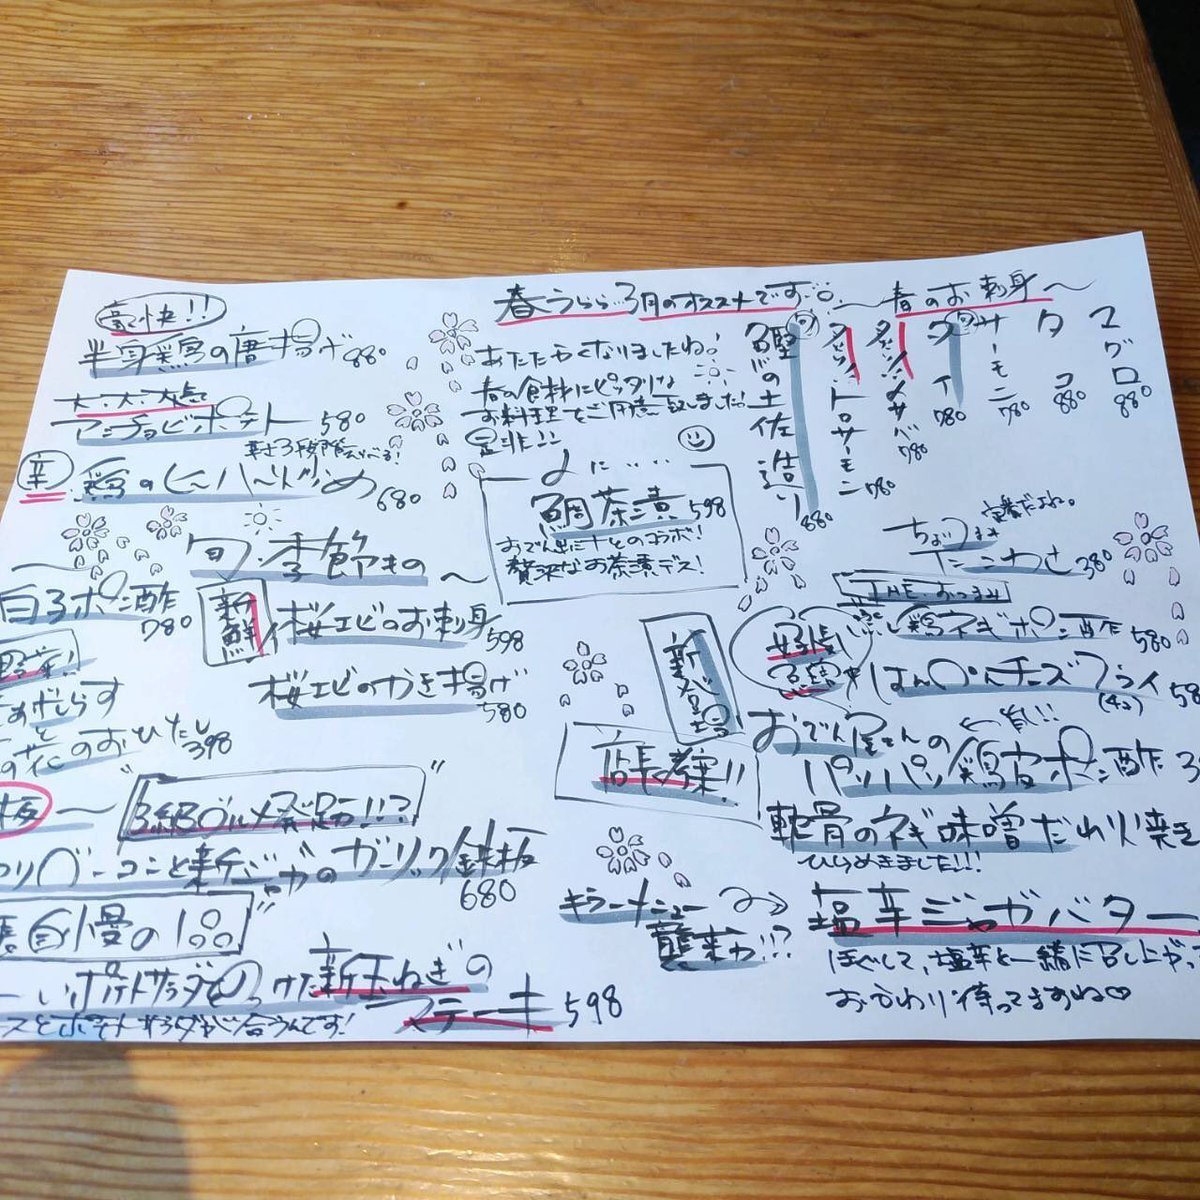 春うらら3月のオススメです
〜春のお刺身〜
マグロ 880
タコ 880
サーモン 780
タイ 780
メサバ 780
トロサーモン 780
鰹の土佐造り 880
あたたかくなりましたね!
春の食材にピッタリな
お料理をご用意致しました!
是非!!
鯛茶漬 598
おでん出汁とのコラボ!
贅沢なお茶漬デス!
豪快!!
半身鶏の唐揚げ 880
大・大・大盛
アンチョビポテト 580
辛さ3段階選べる!
辛 鶏のヒーハー炒め 680
〜旬・季節もの〜
白子ポン酢 780
新鮮 桜エビのお刺身 598
桜エビのかき揚げ 580
野菜!
あげしらす
と
の花のおひたし 398
板〜
"B級グルメ発足!!?"
ベーコンと新じゃがのガーリック鉄板 680
自慢の1品"
ポテトサラダをのっけた新玉ねぎの
ステーキ 598
スとポテトサラダが合うんです!
ちょいつま 定番だよね。
たこわさ 380
THE おつまみ
蒸し鶏ネギポン酢 580
はんぺんチーズフライ
(4コ)
新登場
おでん屋さんの
パリパリ鶏皮ポン酢
店長考案!!
軟骨のネギ味噌だれ焼き
ひらめきました!!!
キラーメニュー
襲来か!?
塩辛じゃがバター
ほぐして、塩辛と一緒に召し上がっ
おかわり待ってますね♡